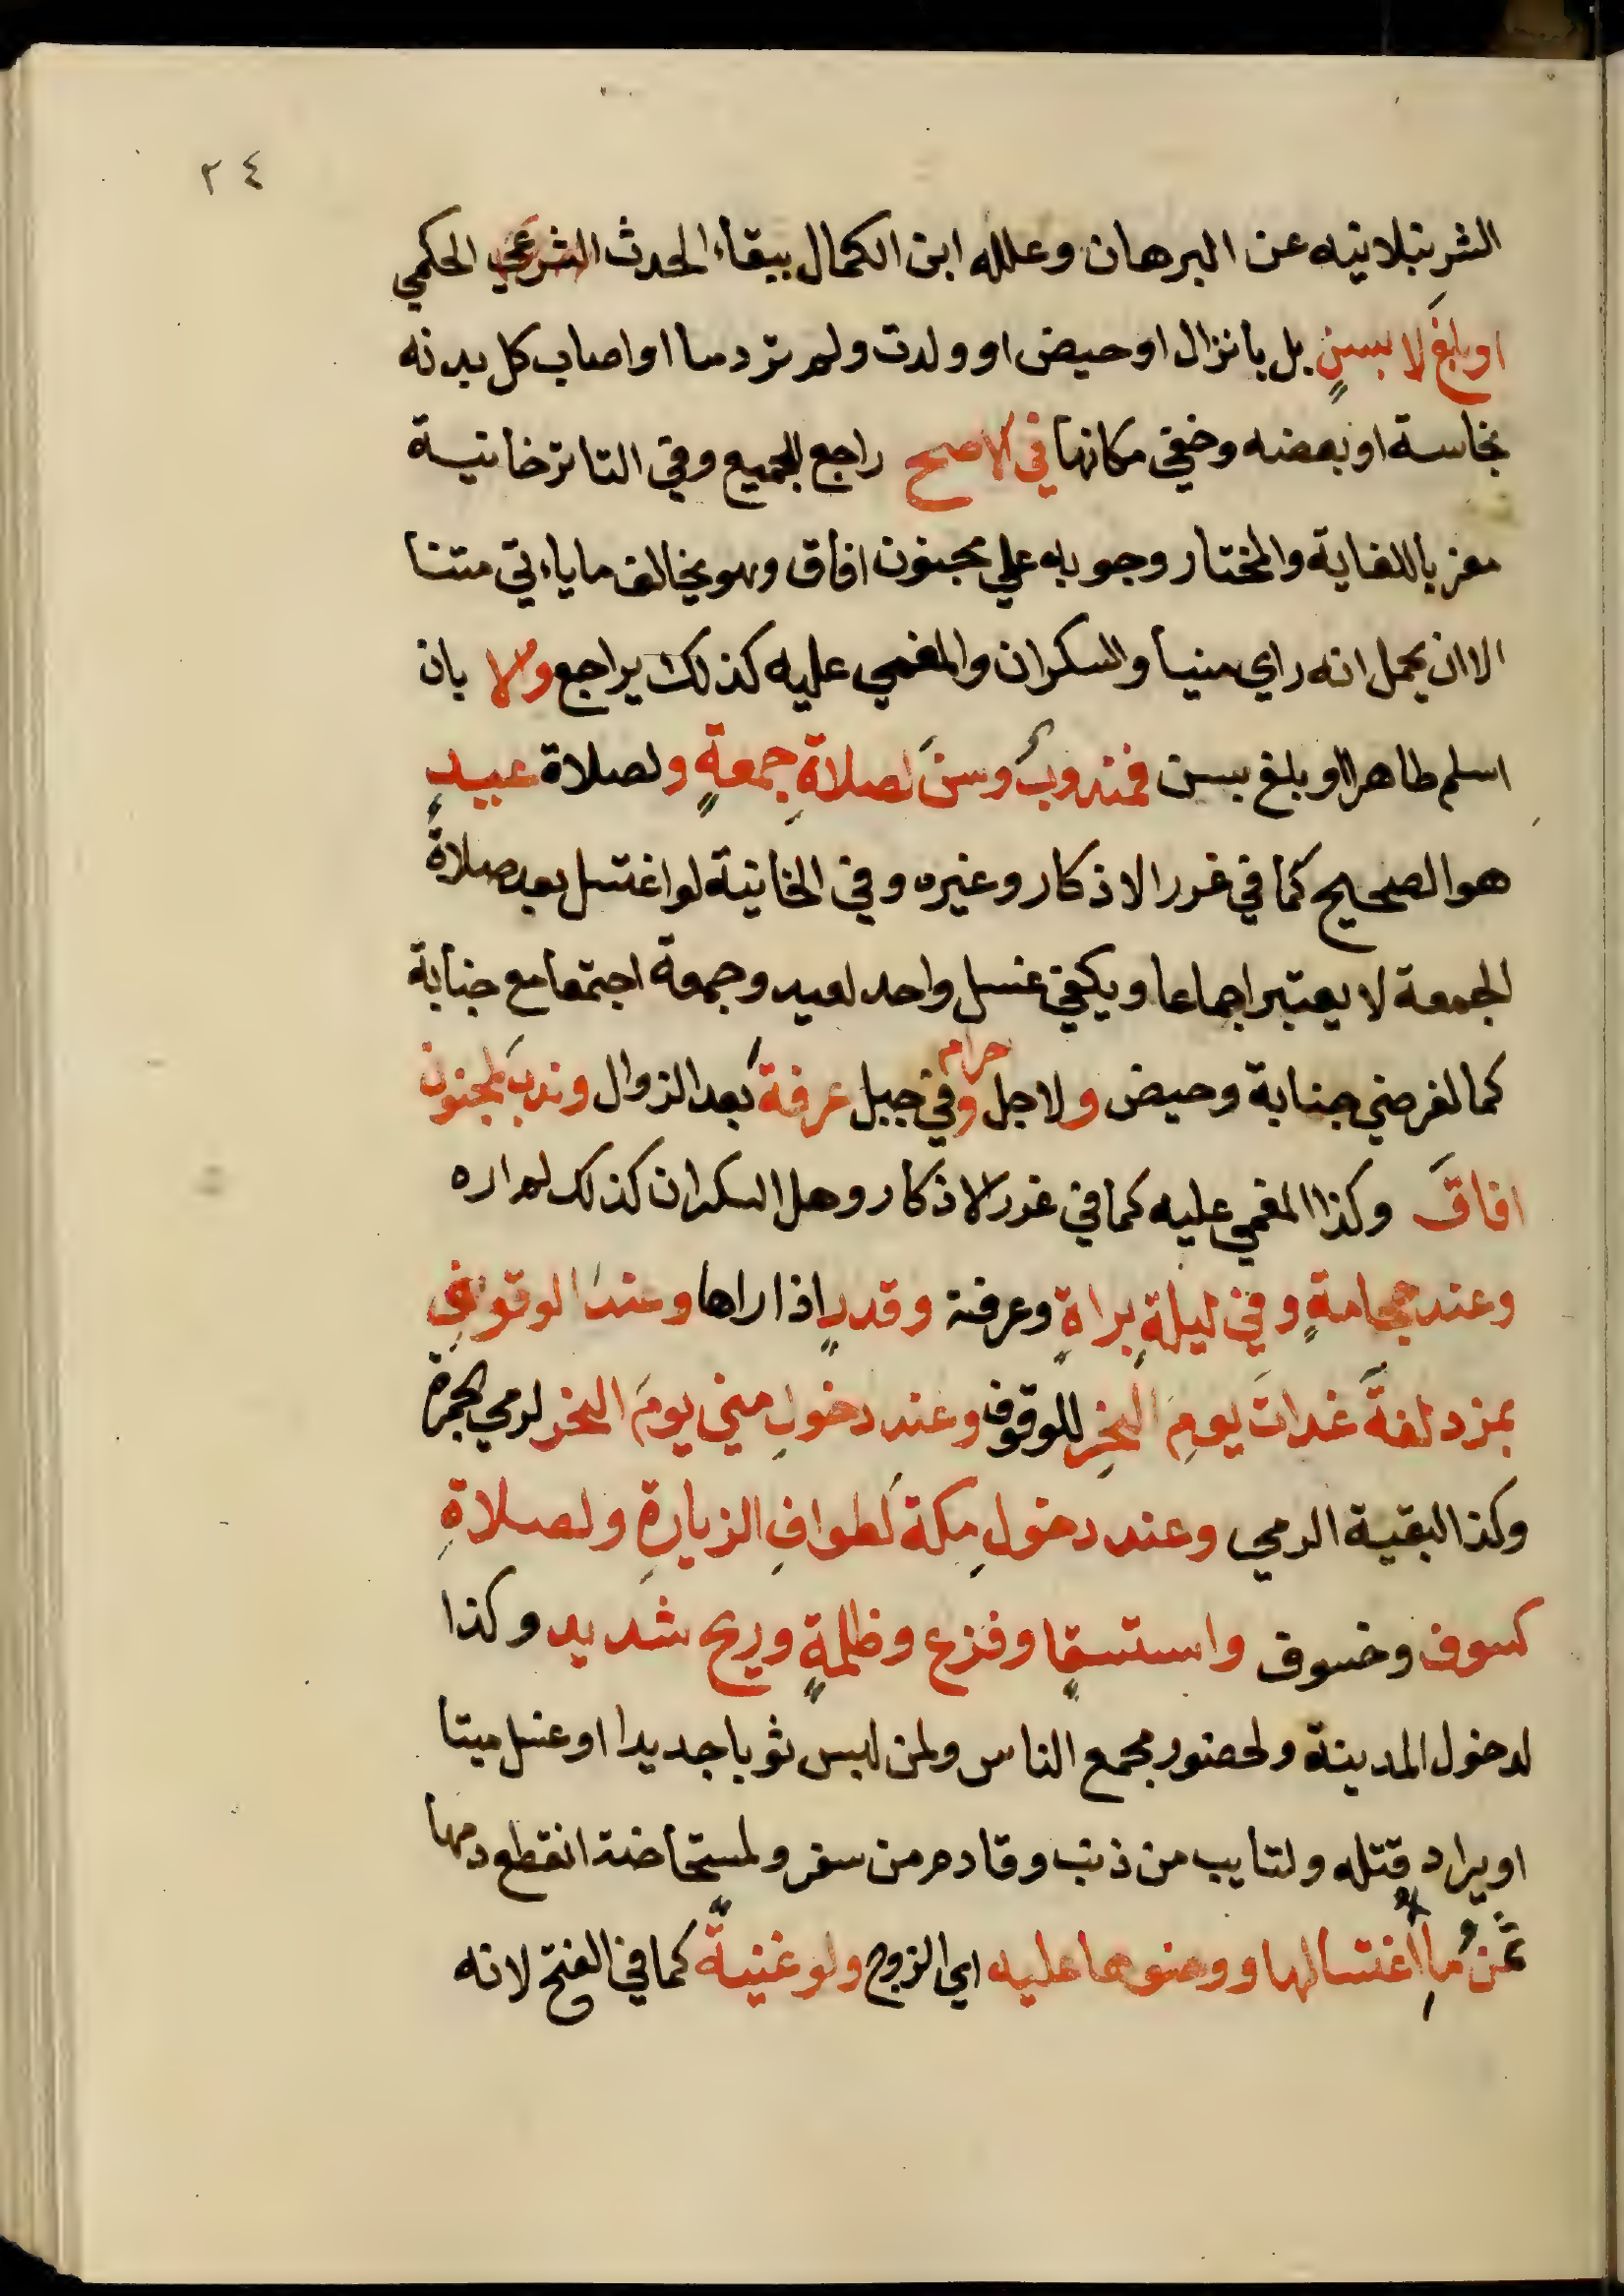 ٢٤
الشرنبلانيه عن البرهان وعلله ابن الكمال ببقاء الحدث الشرعي الحكمي
او بلغَ لا بسنٍ بل بانزال او حيض او ولدت ولم تر دما او اصاب كل بدنه
نجاسة او بعضه وخفي مكانها في الاصح راجع للجميع وفي التاترخانية
معزيا للغاية والمختار وجوبه علي مجنون افاق وهو يخالف ما ياءتي متنا
الا ان يحمل انه راي منيا والسكران والمغمي عليه كذلك يراجع والا بان
اسلم طاهرا او بلغ بسن فمندوبٌ وسنَ لصلاةِ جمعةٍ ولصلاة عيدٍ
هو الصحيح كما في غرر الاذكار وغيره وفي الخانية لو اغتسل بعد صلاة
الجمعة لا يعتبر اجماعا ويكفي غسل واحد لعيد وجمعة اجتمعا مع جنابة
كما لفرضي جنابة وحيض ولاجل احرام وفي جبل عرفةَ بعد الزوال وندبَ لمجنون
افاقَ وكذا المغمي عليه كما في غرر الاذكار وهل السكران كذلك لم اره
وعند حجامةٍ وفي ليلةِ براةٍ وعرفة وقدرٍ اذا راها وعندَ الوقوفِ
بمزدلفةَ غداتَ يومِ النحرِ للوقوف وعند دخولِ مني يومَ النحر لرمي الجمرة
وكذا لبقية الرمي وعند دخولِ مكةَ لطوافِ الزيارةِ ولصلاةِ
كسوف وخسوف واستسقا وفزع وظلمةٍ وريح شديد وكذا
لدخول المدينة ولحضور مجمع الناس ولمن لبس ثوبا جديدا او غسل ميتا
او يراد قتله ولتايب من ذنب وقادم من سفر ولمستحاضة انقطع دمها
ثمنُ ماِ اغتسالها ووضوها عليه اي الزوج ولو غنيةً كما في الفتح لانه